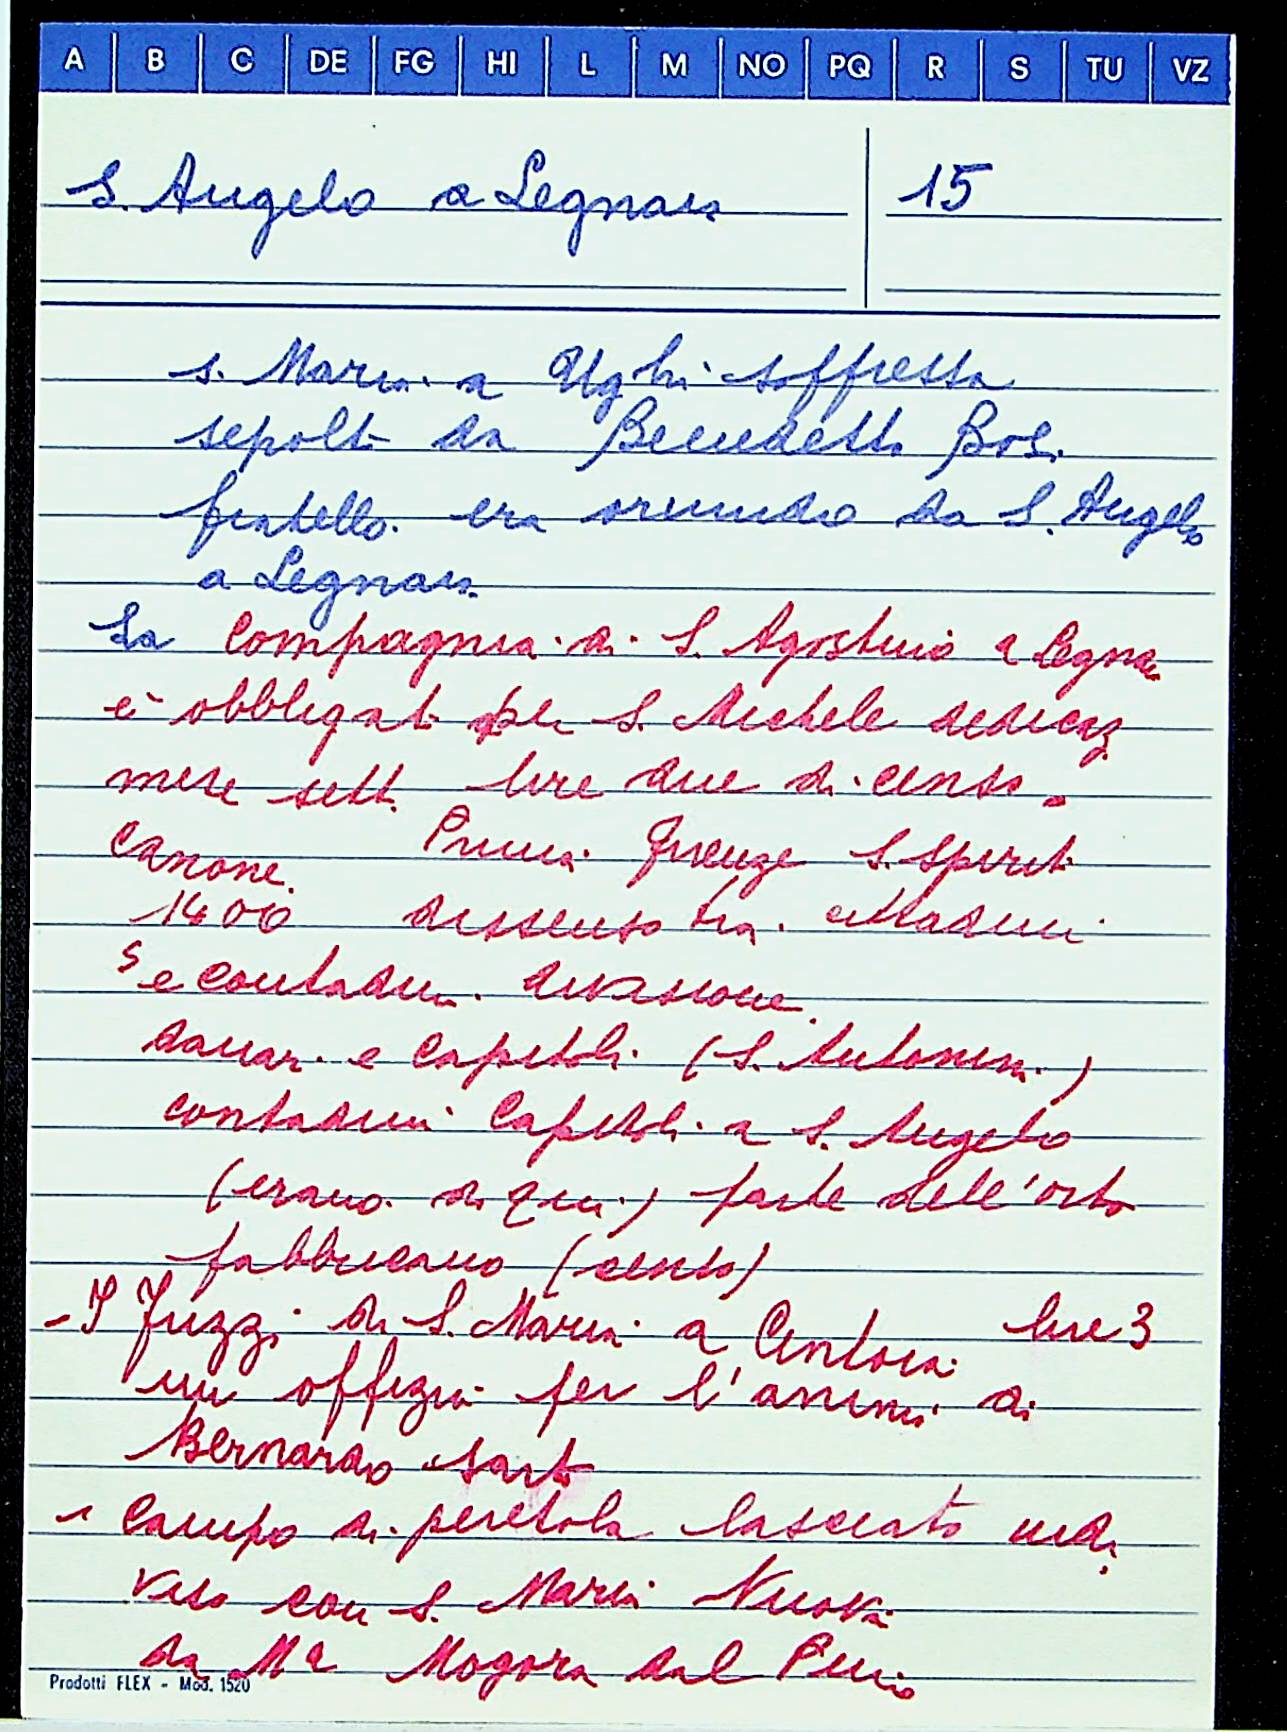 A B C DE FG HI L M NO PQ R S TU VZ
S. Angelo a Legnaia 15
S. Maria a Ughi soffitta
sepolto da Benedetto
fratello era oriundo da S. Angelo
a Legnaia
La Compagnia di S. Agostino a Legna
è obbligata per S. Michele dedicaz
mese sett. lire due di censo
canone. Prima Firenze S. Spirito
1400 dissenso tra cittadini
e contadini divisione
danari e Capitoli (S. Antonino)
contadini Capitoli a S. Angelo
(erano di qui) parte dell'orto
fabbricano (censo)
- I di S. Maria a Cintoia lire 3
un offizio per l'anima di
Bernardo sarto
- Campo di peretola lasciato indi
viso con S. Maria Nuova
da Mª Mogora dal
Prodotti FLEX - Mod. 1520